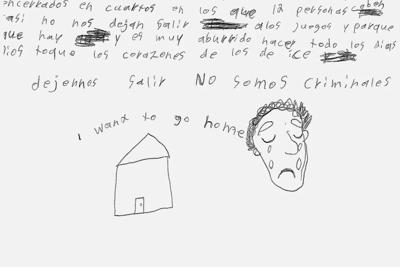 encerrados en cuartos en los que 12 personas caben
asi no nos dejan salir alos juegos y parque
que hay y es muy aburrido hacer todo los dias
Dios toque los corazones de los de ice
dejennos salir NO somos criminales
i want to go home